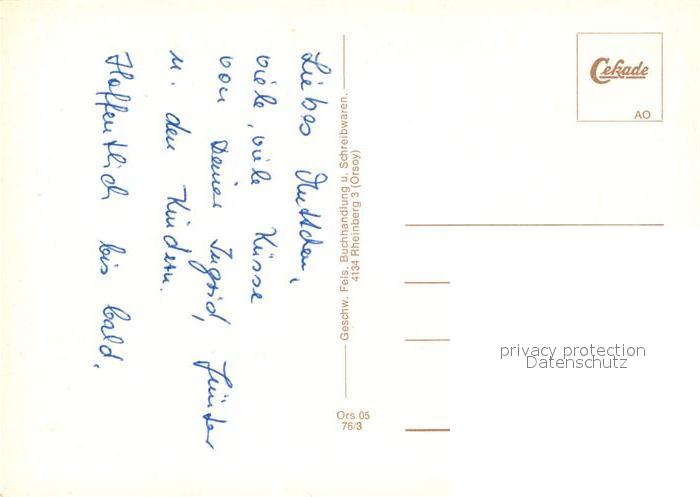 Liebes Muttchen,
viele, viele Küsse
von Deiner Ingrid, Günter
u. den Kindern.
Hoffentlich bis bald.
Geschw. Fels, Buchhandlung u. Schreibwaren,
4134 Rheinberg 3 (Orsoy)
Ors 05
76/3
Cekade
AO
privacy protection
Datenschutz